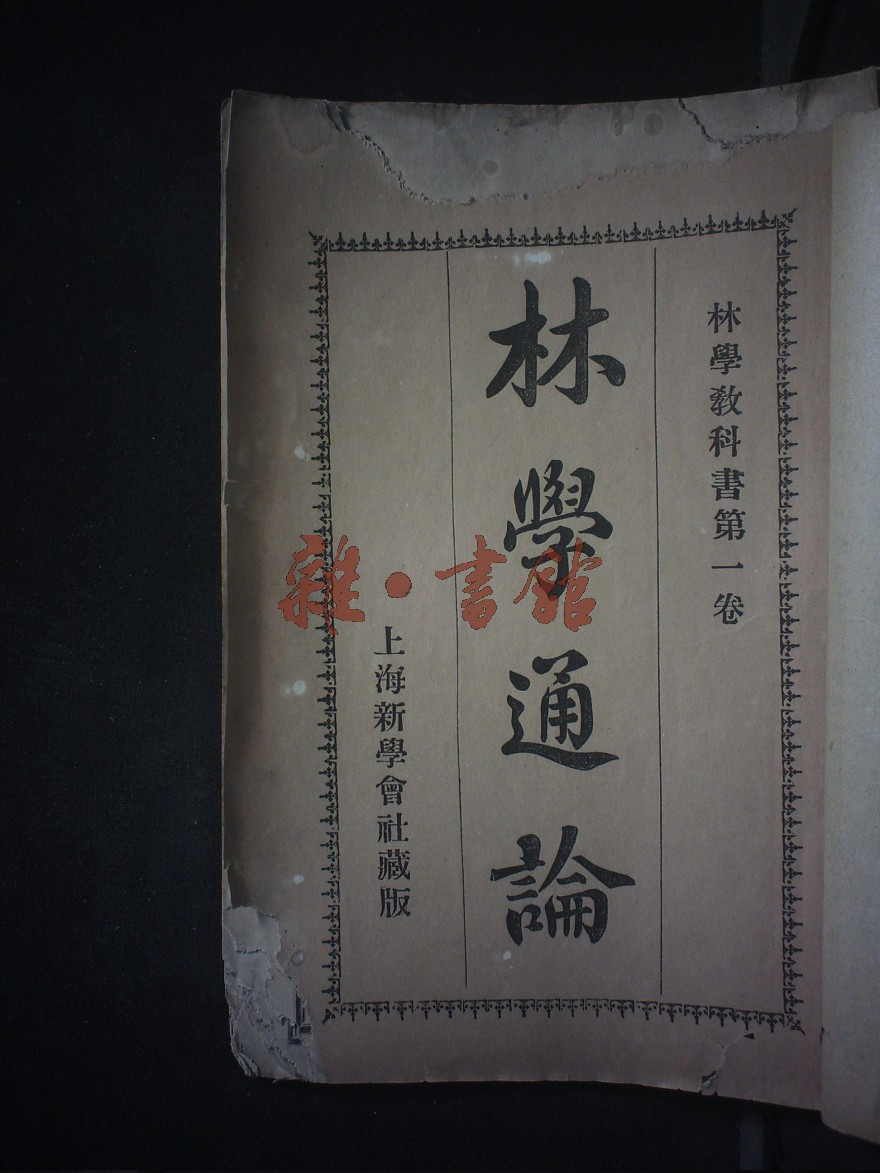 林學教科書第一卷
林學通論
上海新學會社藏版
雜·書館